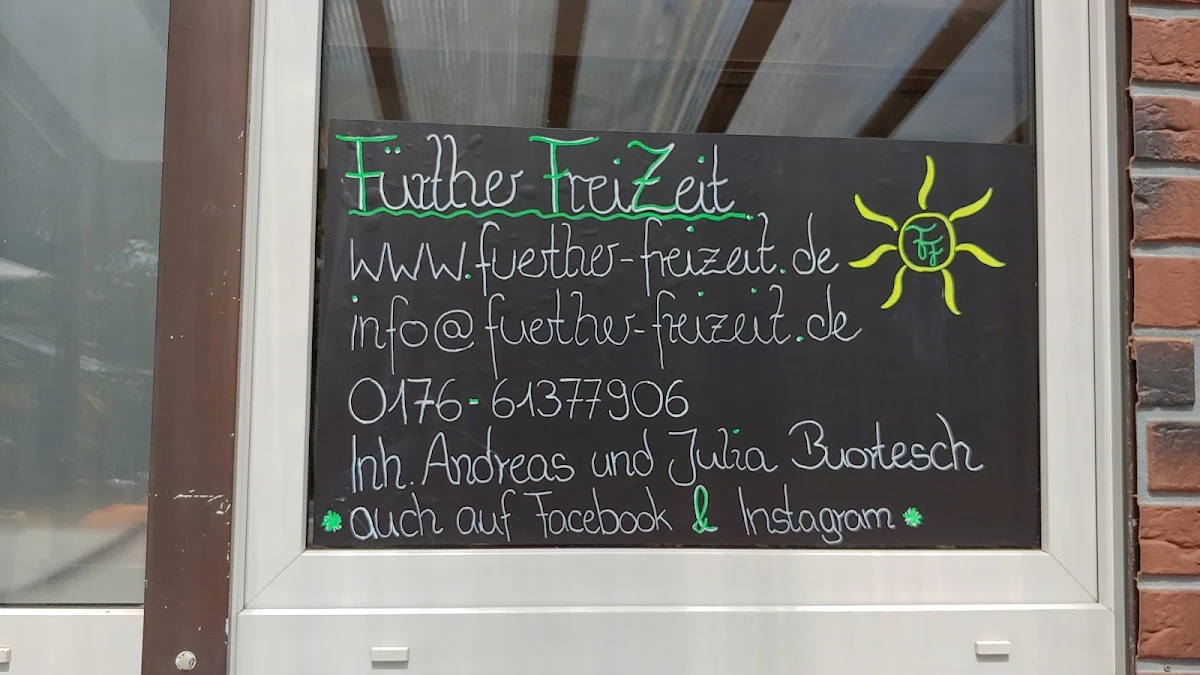 Further FreiZeit
www.fuerther-freizeit.de
FF
info@fuerther-freizeit.de
0176-61377906
Inh. Andreas und Julia Buortesch
auch auf Facebook & Instagram